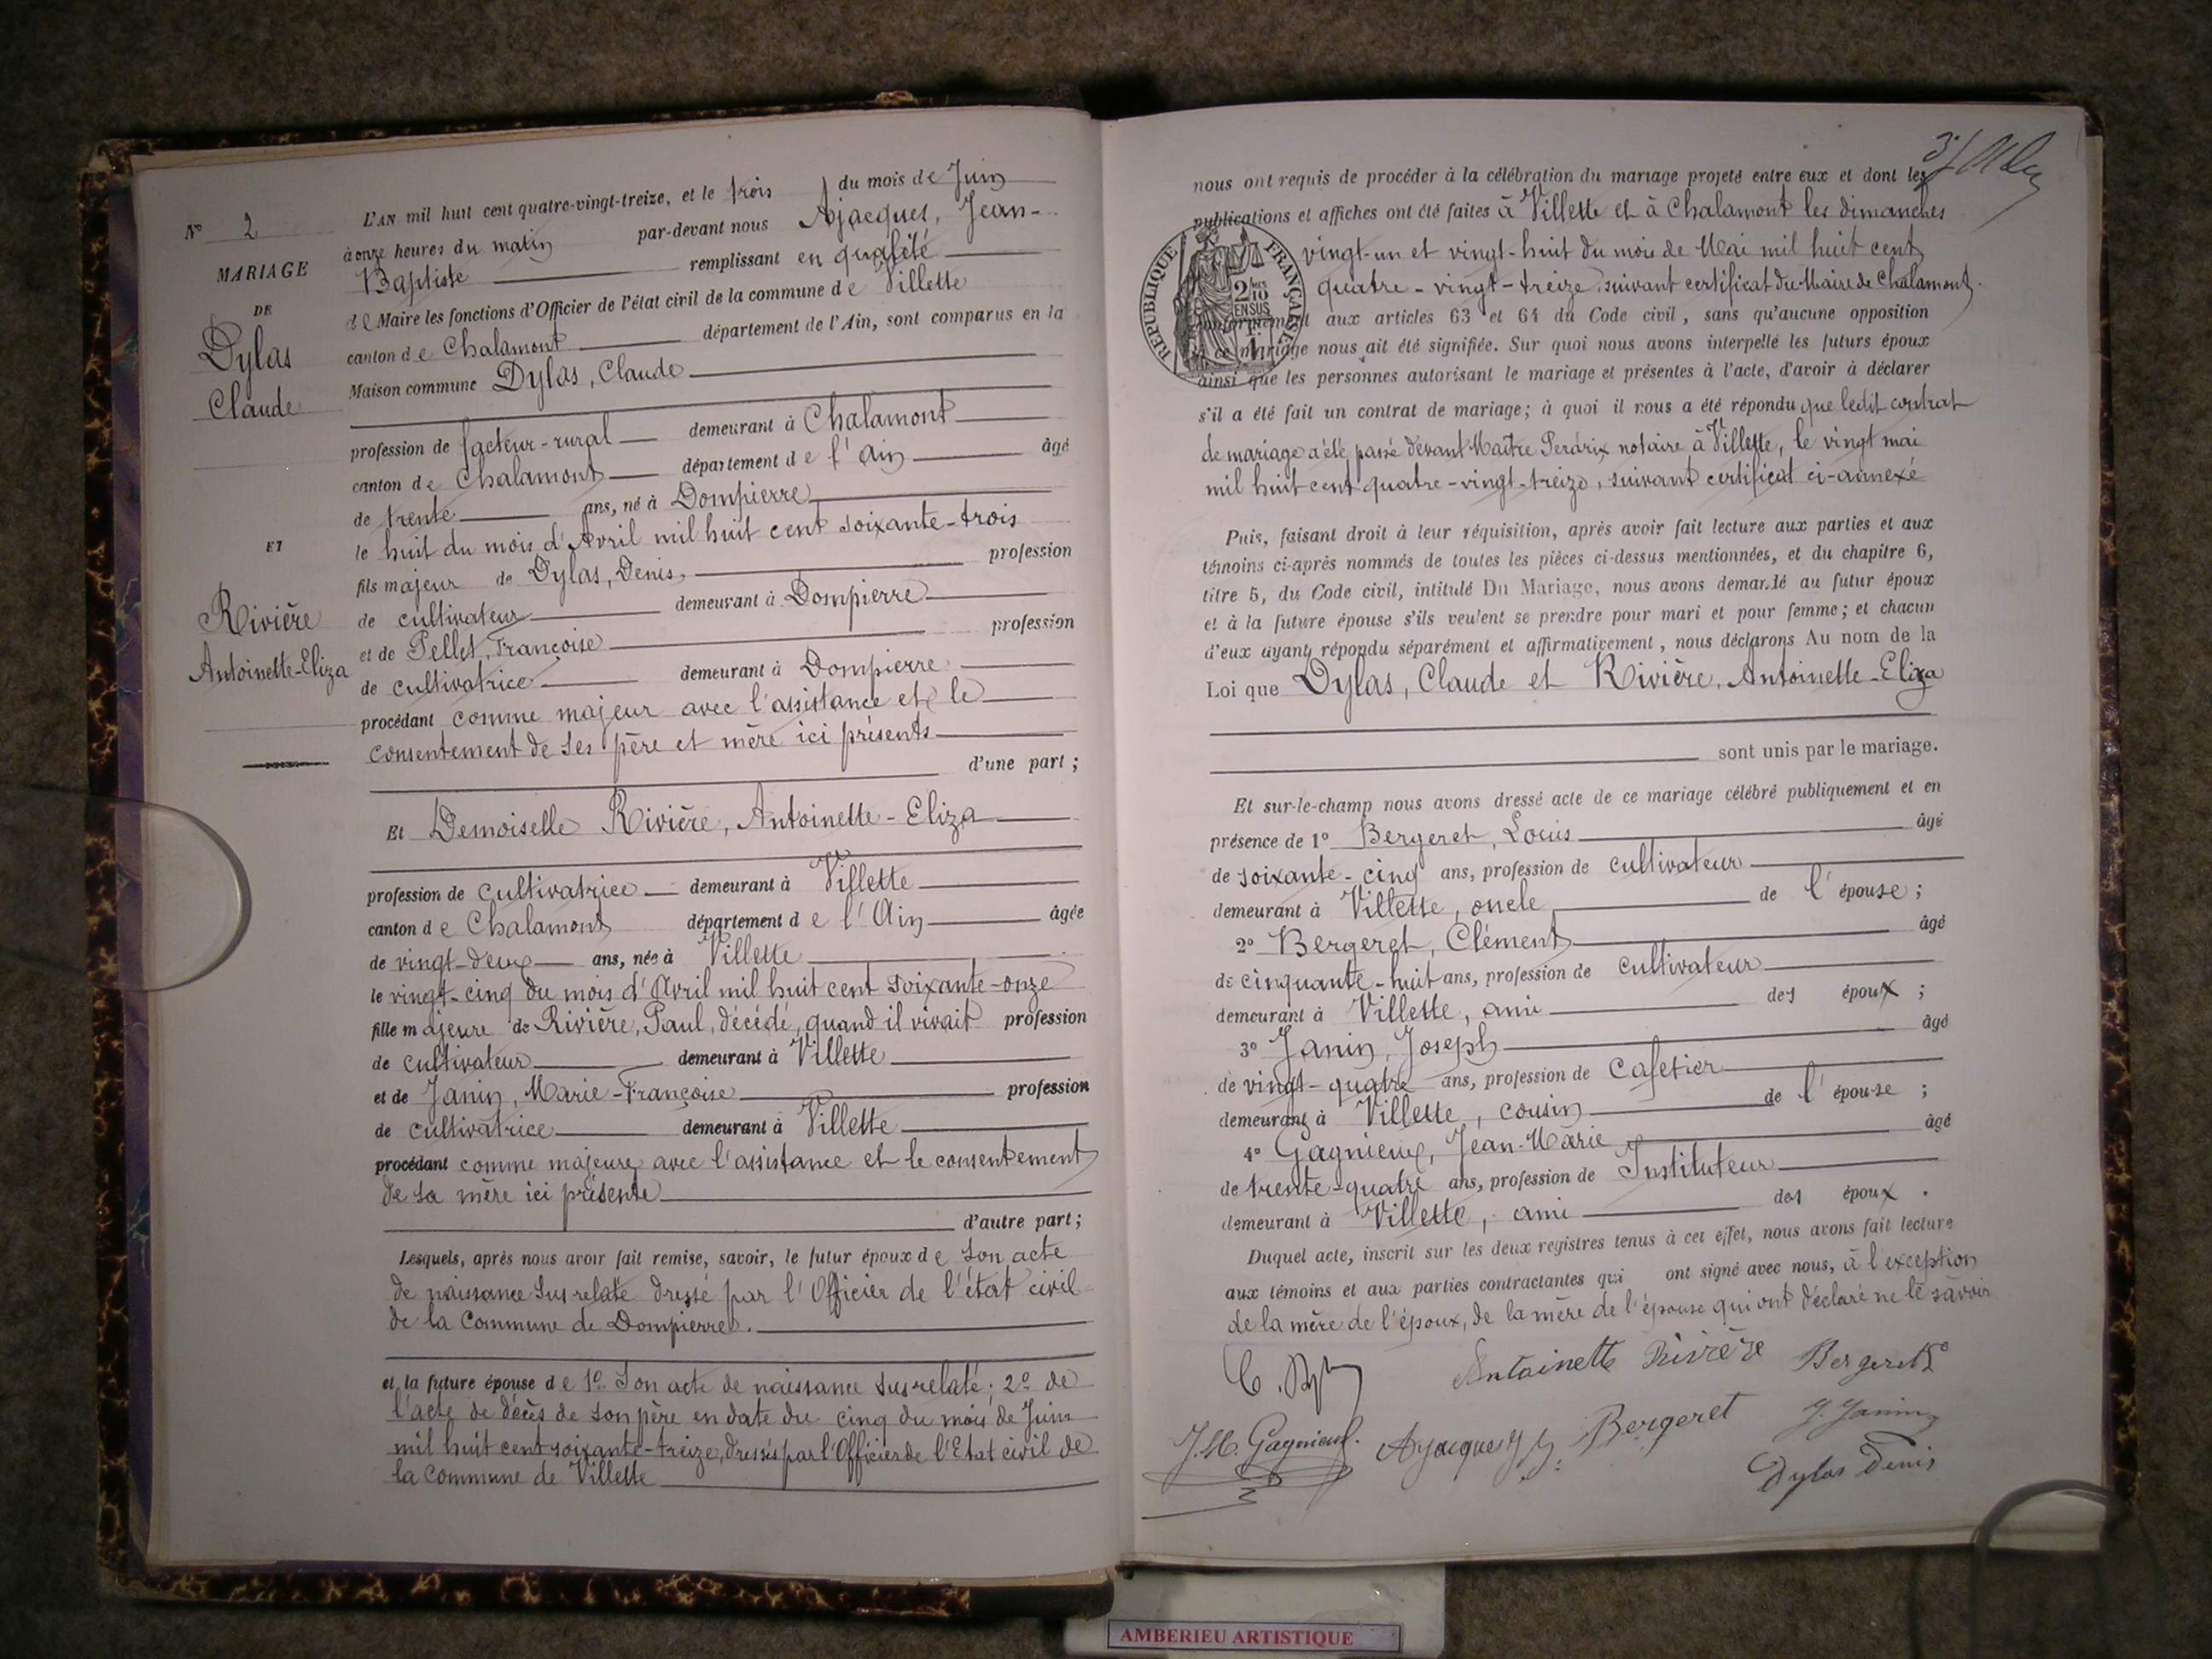 N° 2
MARIAGE
DE
Dylas
Claude
ET
Rivière
Antoinette-Eliza
L'AN mil huit cent quatre-vingt-treize, et le trois du mois de Juin
à onze heures du matin par-devant nous Ajacques, Jean-
Baptiste remplissant en qualité
de Maire les fonctions d'Officier de l'état civil de la commune de Villette
canton de Chalamont département de l'Ain, sont comparus en la
Maison commune Dylas, Claude
profession de facteur-rural demeurant à Chalamont
canton de Chalamont département de l'Ain âgé
de trente ans, né à Dompierre
le huit du mois d'Avril mil huit cent soixante-trois
fils majeur de Dylas, Denis, profession
de cultivateur demeurant à Dompierre
et de Pellet, Françoise profession
de cultivatrice demeurant à Dompierre
procédant comme majeur avec l'assistance et le
consentement de ses père et mère ici présents
d'une part ;
Et Demoiselle Rivière, Antoinette-Eliza
profession de cultivatrice demeurant à Villette
canton de Chalamont département de l'Ain âgée
de vingt-deux ans, née à Villette
le vingt-cinq du mois d'Avril mil huit cent soixante-onze
fille majeure de Rivière, Paul, décédé, quand il vivait profession
de cultivateur demeurant à Villette
et de Janin, Marie-Françoise profession
de cultivatrice demeurant à Villette
procédant comme majeure avec l'assistance et le consentement
de sa mère ici présente
d'autre part ;
Lesquels, après nous avoir fait remise, savoir, le futur époux de son acte
de naissance susrelaté dressé par l'Officier de l'état civil
de la Commune de Dompierre.
et la future épouse de 1° Son acte de naissance susrelaté ; 2° de
l'acte de décès de son père en date du cinq du mois de Juin
mil huit cent soixante-treize, dressés par l'Officier de l'Etat civil de
la commune de Villette
nous ont requis de procéder à la célébration du mariage projeté entre eux et dont les
publications et affiches ont été faites à Villette et à Chalamont les dimanches
vingt-un et vingt-huit du mois de Mai mil huit cent
quatre-vingt-treize, suivant certificat du Maire de Chalamont.
conformément aux articles 63 et 64 du Code civil, sans qu'aucune opposition
à ce mariage nous ait été signifiée. Sur quoi nous avons interpellé les futurs époux
ainsi que les personnes autorisant le mariage et présentes à l'acte, d'avoir à déclarer
s'il a été fait un contrat de mariage ; à quoi il nous a été répondu que ledit contrat
de mariage a été passé devant Maître Perdrix notaire à Villette, le vingt mai
mil huit cent quatre-vingt-treize, suivant certificat ci-annexé
RÉPUBLIQUE FRANÇAISE
2/10 EN SUS
Puis, faisant droit à leur réquisition, après avoir fait lecture aux parties et aux
témoins ci-après nommés de toutes les pièces ci-dessus mentionnées, et du chapitre 6,
titre 5, du Code civil, intitulé Du Mariage, nous avons demandé au futur époux
et à la future épouse s'ils veulent se prendre pour mari et pour femme ; et chacun
d'eux ayant répondu séparément et affirmativement, nous déclarons Au nom de la
Loi que Dylas, Claude et Rivière, Antoinette-Eliza
sont unis par le mariage.
Et sur-le-champ nous avons dressé acte de ce mariage célébré publiquement et en
présence de 1° Bergeret, Louis âgé
de soixante-cinq ans, profession de cultivateur
demeurant à Villette, oncle de l'épouse ;
2° Bergeret, Clément âgé
de cinquante-huit ans, profession de cultivateur
demeurant à Villette, ami des époux ;
3° Janin, Joseph âgé
de vingt-quatre ans, profession de Cafetier
demeurant à Villette, cousin de l'épouse ;
4° Gagnieux, Jean-Marie âgé
de trente-quatre ans, profession de Instituteur
demeurant à Villette, ami des époux.
Duquel acte, inscrit sur les deux registres tenus à cet effet, nous avons fait lecture
aux témoins et aux parties contractantes qui ont signé avec nous, à l'exception
de la mère de l'époux, de la mère de l'épouse qui ont déclaré ne le savoir
Antoinette Rivière Bergeret
J.M. Gagnieux. Ajacques Bergeret J. Janin
Dylas Denis
AMBERIEU ARTISTIQUE